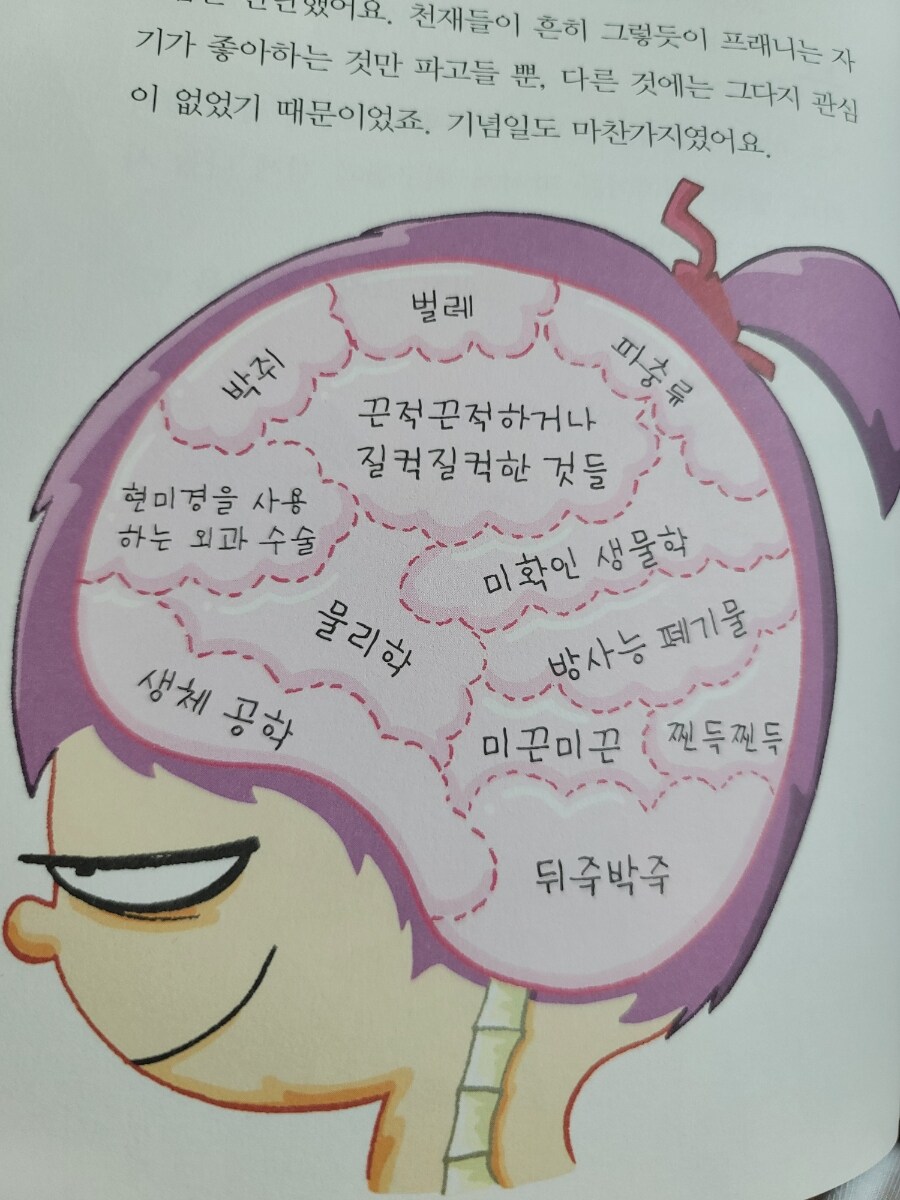 했어요. 천재들이 흔히 그렇듯이 프래니는 자
기가 좋아하는 것만 파고들 뿐, 다른 것에는 그다지 관심
이 없었기 때문이었죠. 기념일도 마찬가지였어요.
벌레
박쥐
파충류
끈적끈적하거나
질컥질컥한 것들
현미경을 사용
하는 외과 수술
미확인 생물학
물리학
방사능 폐기물
생체 공학
미끈미끈
찐득찐득
뒤죽박죽